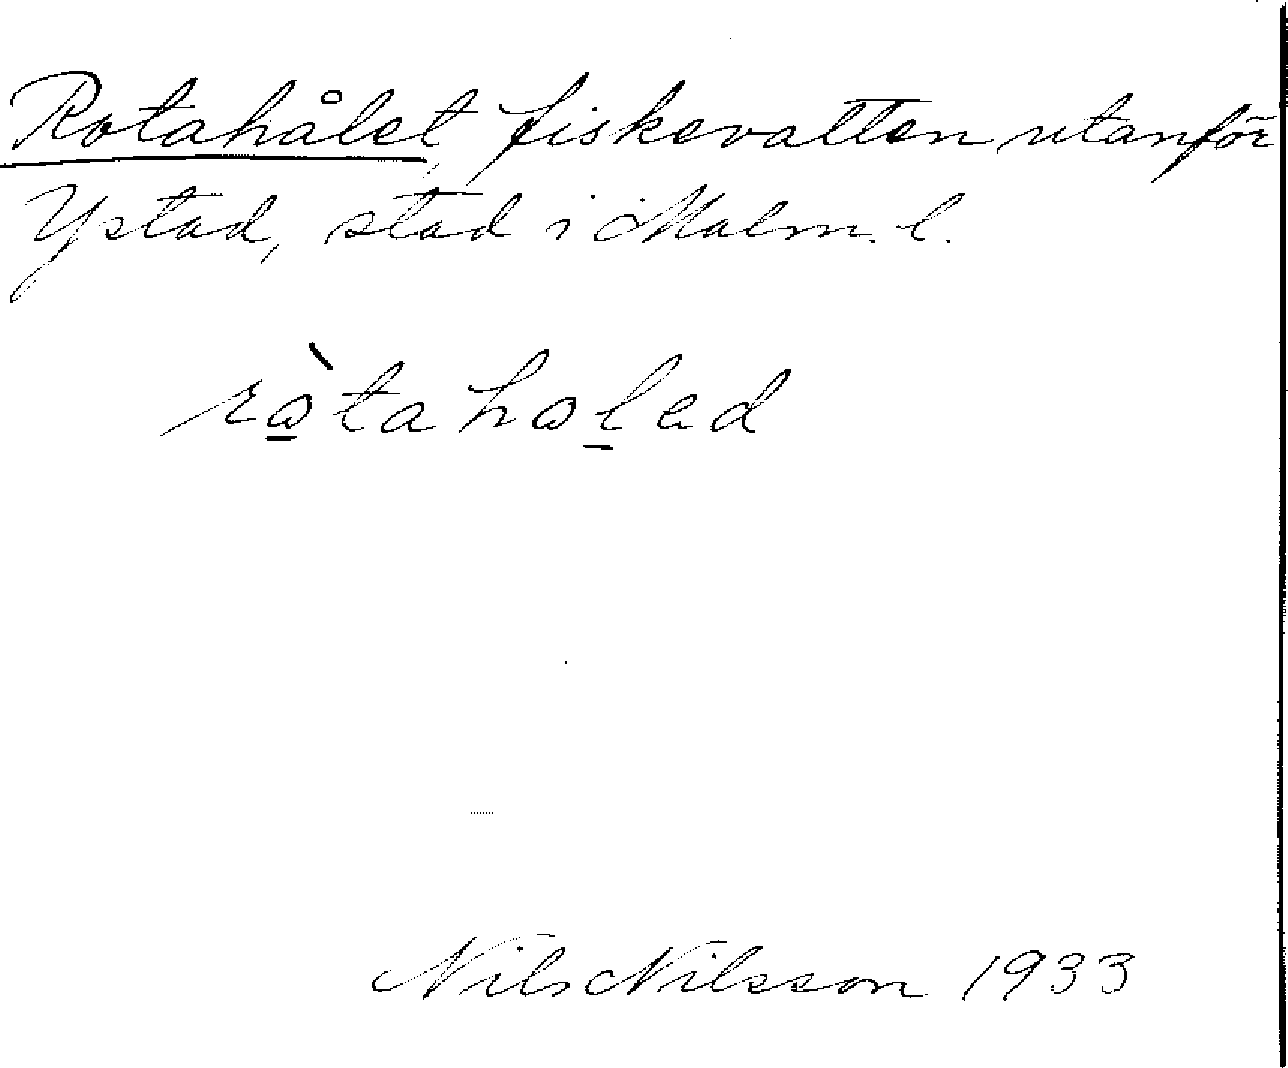 Rotahålet, fiskevatten utanför
Ystad, stad i Malm. l.
rò̱tahoḻed
Nils Nilsson 1933